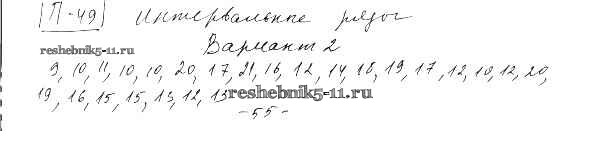 П-49 Интервальные ряды
Вариант 2
reshebnik5-11.ru
9, 10, 11, 10, 10, 20, 17, 21, 16, 12, 14, 18, 19, 17, 12, 10, 12, 20,
19, 16, 15, 15, 13, 12, 13 reshebnik5-11.ru
-55-